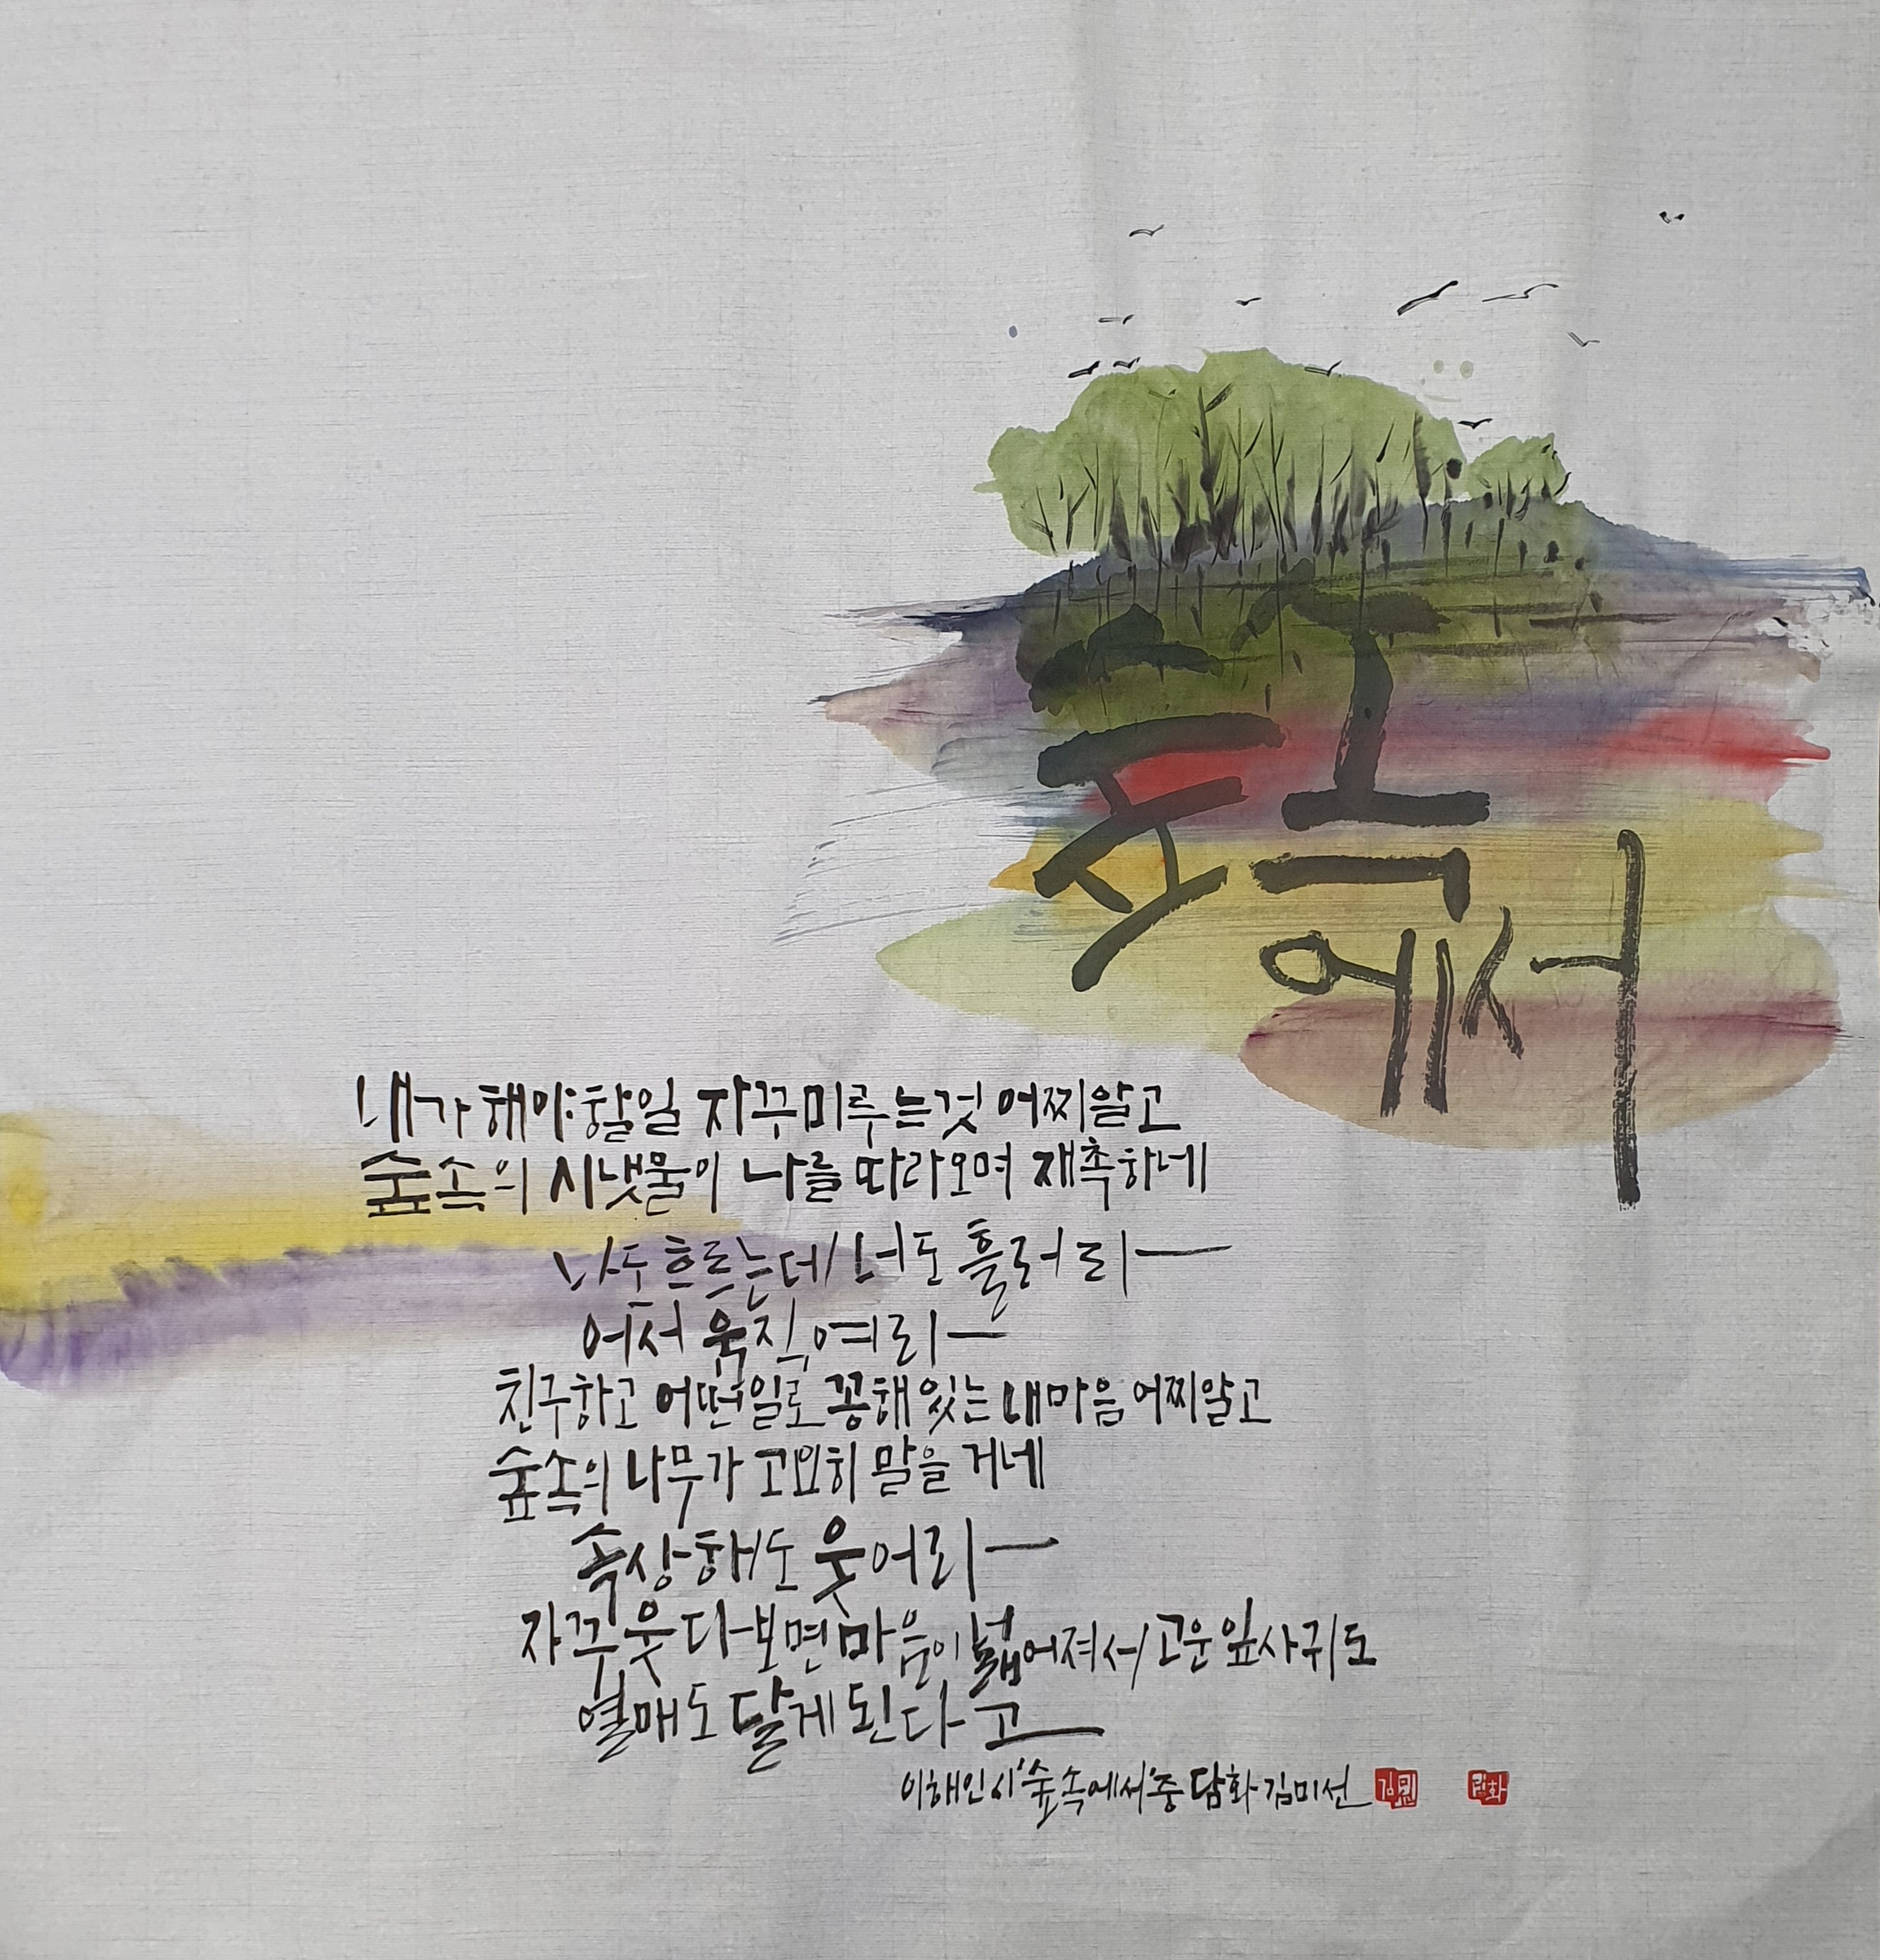 숲속
에서
내가 해야 할 일 자꾸 미루는 것 어찌 알고
숲속의 시냇물이 나를 따라오며 재촉하네
나도 흐르는데 너도 흘러 리—
어서 움직여 리—
친구하고 어떤 일로 꽁해 있는 내 마음 어찌 알고
숲속의 나무가 고요히 말을 거네
속상해도 웃어 리—
자꾸 웃다 보면 마음이 넓어져서 고운 잎사귀도
열매도 달게 된다고
이해인 시 '숲속에서' 중 담화 김미선